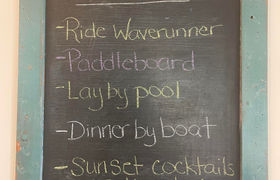 -Ride Waverunner
-Paddleboard
-Lay by pool
-Dinner by boat
-Sunset cocktails